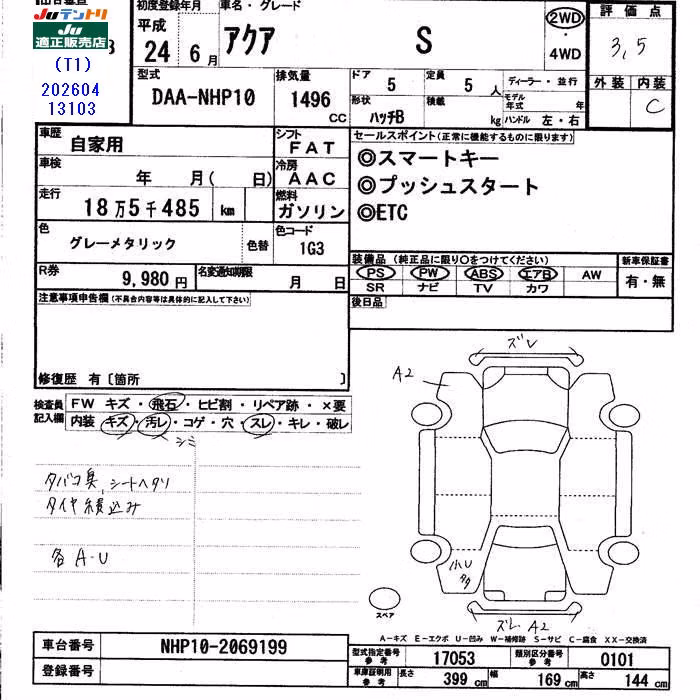 Juテントリ
Ju
適正販売店
(T1)
202604
13103
初度登録年月
平成
24年6月
車名・グレード
アクア S
2WD
・
4WD
評価点
3,5
外装 内装
C
型式
DAA-NHP10
排気量
1496
CC
ドア
5
定員
5人
ディーラー・並行
形状
ハッチB
積載
kg
モデル年式 年
ハンドル 左・右
車歴
自家用
シフト
FAT
車検
年 月( 日)
冷房
AAC
走行
18万5千485 km
燃料
ガソリン
色
グレーメタリック
色替
色コード
1G3
R券
9,980円
名変通知期限
月 日
セールスポイント(正常に機能するものに限ります)
◎スマートキー
◎プッシュスタート
◎ETC
装備品(純正品に限り○をつけてください)
新車保証書
PS PW ABS エアB AW
SR ナビ TV カワ
有・無
後日品
注意事項申告欄(不具合内容等は具体的に記入して下さい)
修復歴 有〔箇所 〕
検査員記入欄
FW キズ・飛石・ヒビ割・リペア跡・×要
内装 キズ・汚レ・コゲ・穴・スレ・キレ・破レ
シミ
タバコ臭、シートヘタリ
タイヤ積込み
各A-U
ズレ
A2
小U
タタ
スペア
ズレ A2
A-キズ E-エクボ U-凹み W-補修跡 S-サビ C-腐食 XX-交換済
車台番号
NHP10-2069199
登録番号
型式指定番号
参考
17053
類別区分番号
参考
0101
車庫証明用
参考
長さ
399 cm
幅
169 cm
高さ
144 cm